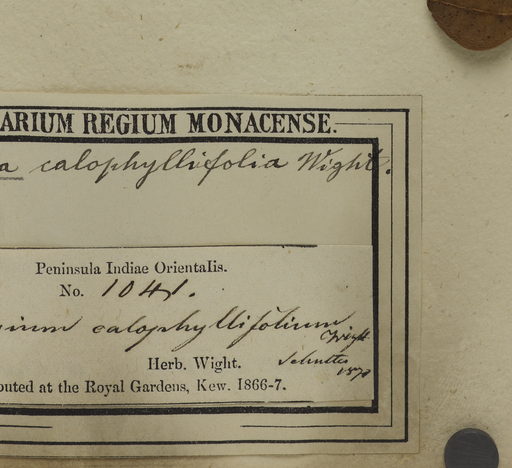 ARIUM REGIUM MONACENSE.
a calophyllifolia Wight.
Peninsula Indiae Orientalis.
No. 1041.
ium calophyllifolium
Wight
Herb. Wight.
outed at the Royal Gardens, Kew. 1866-7.